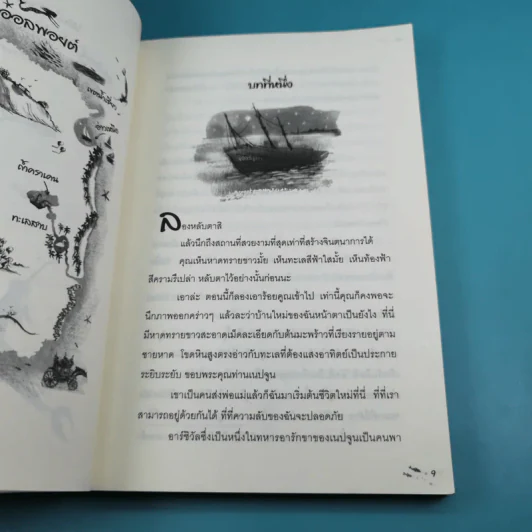 ออลพอยต์
ถ้ำคราเคน
ทะเลสาบ
บทที่หนึ่ง
ลองหลับตาสิ
แล้วนึกถึงสถานที่สวยงามที่สุดเท่าที่สร้างจินตนาการได้
คุณเห็นหาดทรายขาวมั้ย เห็นทะเลสีฟ้าใสมั้ย เห็นท้องฟ้า
สีครามรึเปล่า หลับตาไว้อย่างนั้นก่อนนะ
เอาล่ะ ตอนนี้ก็ลองเอาร้อยคูณเข้าไป เท่านี้คุณก็คงพอจะ
นึกภาพออกคร่าวๆ แล้วละว่าบ้านใหม่ของฉันหน้าตาเป็นยังไง ที่นี่
มีหาดทรายขาวสะอาดเม็ดละเอียดกับต้นมะพร้าวที่เรียงรายอยู่ตาม
ชายหาด โขดหินสูงตรงอ่าวกับทะเลที่ต้องแสงอาทิตย์เป็นประกาย
ระยิบระยับ ขอบพระคุณท่านเนปจูน
เขาเป็นคนส่งพ่อแม่แล้วก็ฉันมาเริ่มต้นชีวิตใหม่ที่นี่ ที่ที่เรา
สามารถอยู่ด้วยกันได้ ที่ที่ความลับของฉันจะปลอดภัย
อาร์ชิวัลซึ่งเป็นหนึ่งในทหารอารักขาของเนปจูนเป็นคนพา
9